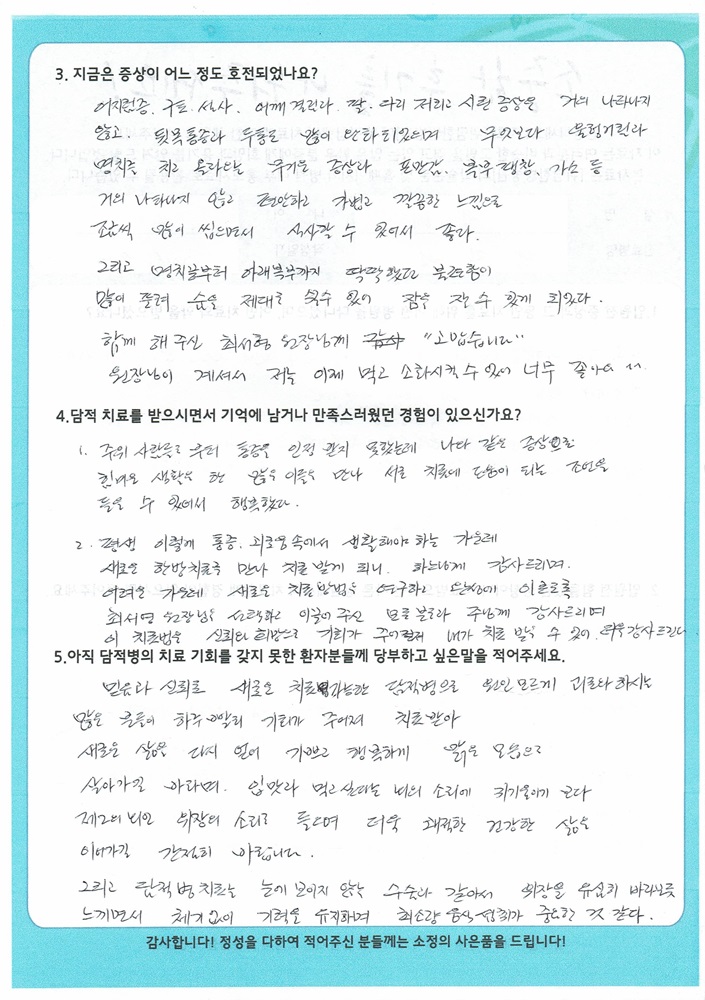 3. 지금은 증상이 어느 정도 호전되었나요?
어지럼증, 구토, 설사, 어깨 결린다, 팔, 다리 저리고 시린 증상은 거의 나타나지
않고, 뒷목통증과 두통도 많이 완화되었으며 무엇보다 울렁거린과
명치를 치고 올라오는 증상과 포만감, 복부팽창, 가스 등
거의 나타나지 않고 편안하고 가볍고 깔끔한 느낌으로
조금씩 많이 씹으면서 식사할 수 있어서 좋다.
그리고 명치끝부터 아래복부까지 딱딱했던
많이 풀려 숨을 제대로 쉴수 있어 잠을 잘 수 있게 되었다.
함께 해 주신 최서형 원장님께 "고맙습니다"
원장님이 계셔서 저는 이제 먹고 소화시킬 수 있어 너무 좋아요
4.담적 치료를 받으시면서 기억에 남거나 만족스러웠던 경험이 있으신가요?
1. 주위 사람들로 부터 통증을 인정 받지 못했는데 나와 같은 증상으로
힘겨운 생활을 한 많은 이들을 만나 서로 치료에 도움이 되는 조언을
들을 수 있어서 행복했다.
2. 평생 이렇게 통증, 괴로움 속에서 생활해야 하는 가운데
새로운 한방치료를 만나 치료 받게 되니, 하느님께 감사드리며,
어려운 가운데 새로운 치료방법을 연구하고 완성에 이르도록
원장님을 선택하고 이끌어 주신 모든 분들과 주님께 감사드리며
이 치료법을 신뢰와 희망으로 기회가 주어져 내가 치료 받을 수 있어 더욱 감사드린다
5.아직 담적병의 치료 기회를 갖지 못한 환자분들께 당부하고 싶은말을 적어주세요.
믿음과 신뢰로 새로운 담적병으로 원인 모르게 괴로와 하시는
많은 분들이 하루 빨리 기회가 주어져 치료받아
새로운 삶을 다시 얻어 기쁘고 행복하게 맑은 모습으로
살아가길 바라며, 입맛과 먹고싶다는 뇌의 소리에 귀기울이기 보다
제2의 뇌인 위장의 소리를 들으며 더욱 쾌적한 건강한 삶을
이어가길 간절히 바랍니다.
그리고 담적병 치료는 눈에 보이지 않는 수술과 같아서 위장을 유심히 바라보듯
느끼면서 체기없이 기력을 유지하며 최소량 음식 섭취가 중요한 것 같다.
감사합니다! 정성을 다하여 적어주신 분들께는 소정의 사은품을 드립니다!